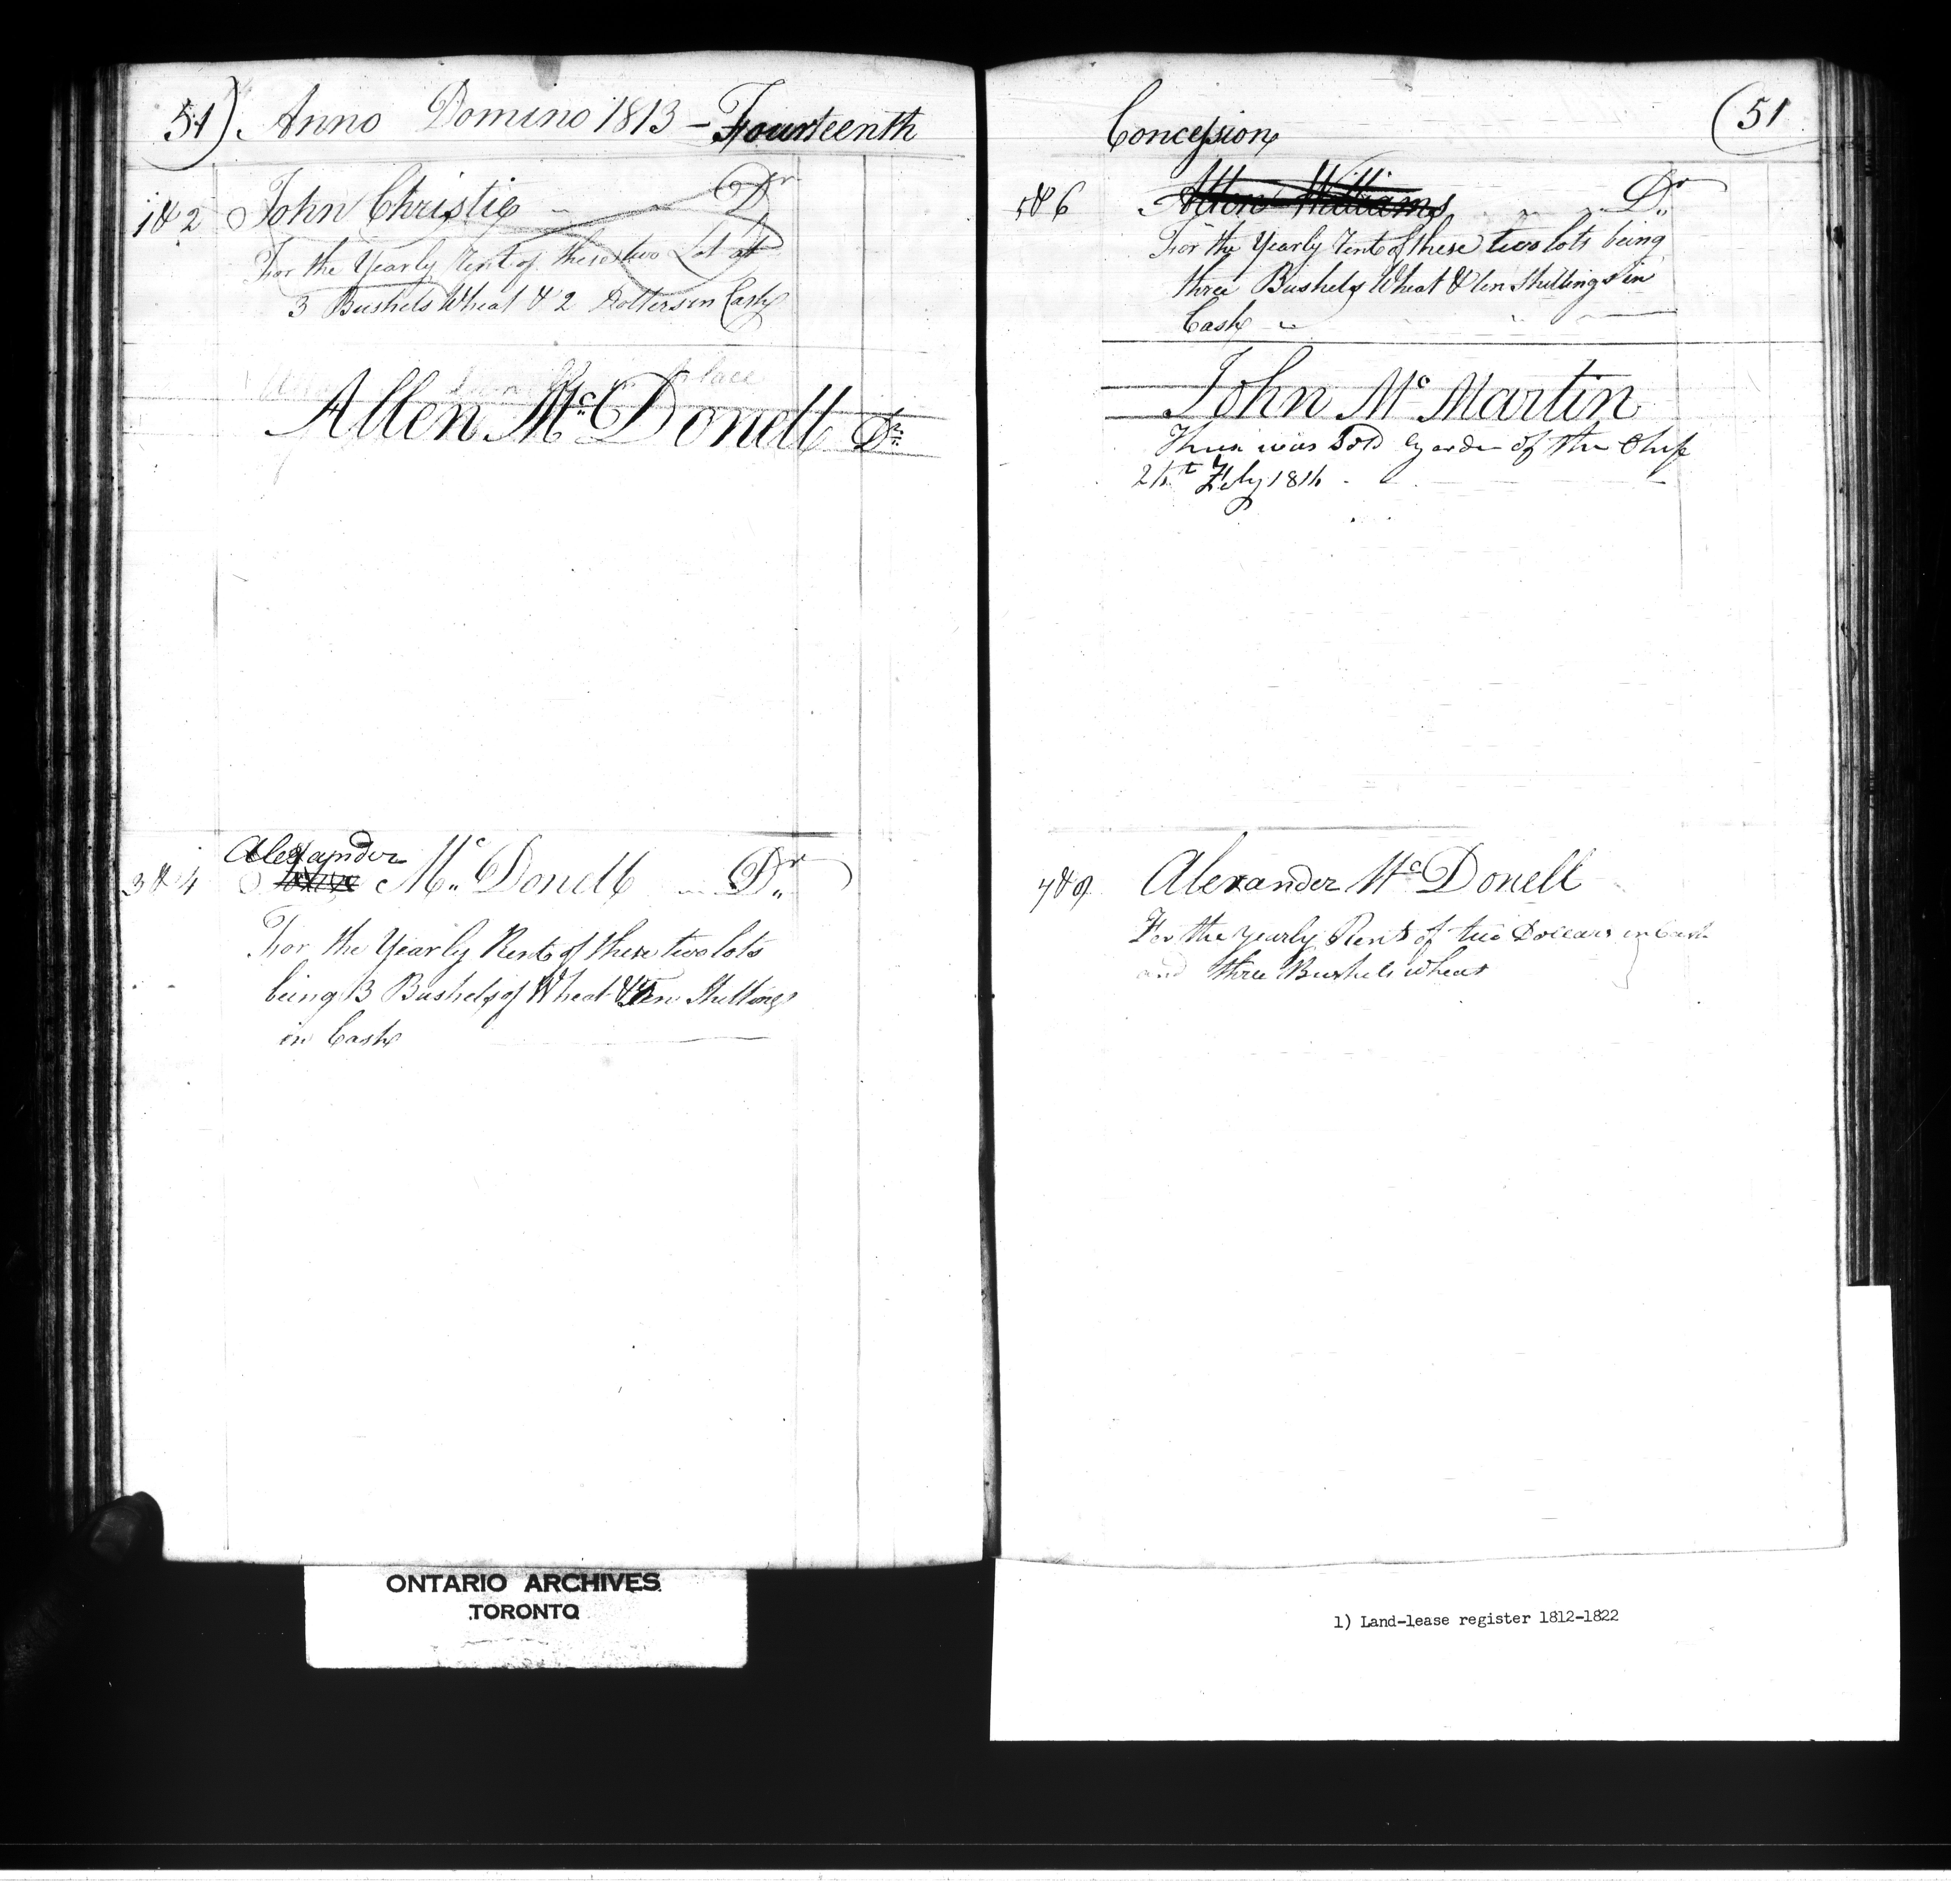 51) Anno Domino 1813 - Fourteenth
1 & 2 John Christie Dr
For the Yearly Rent of these two Lot at
3 Bushels Wheat & 2 Dollers in Cash
place
Allen Mc Donell Dr
Alexander
3 & 4 Mc Donell Dr
For the Yearly Rent of these two lots
being 3 Bushels of Wheat & Ten Shillings
in Cash
Concession (51
5 & 6 Allen Williams Dr
For the Yearly Rent of these two lots being
three Bushels Wheat & ten Shillings in
Cash
John Mc Martin
was Sold by order of the
Feby
7 & Alexander Mc Donell
For the yearly Rent of two Dollars in Cash
and three Bushels wheat
ONTARIO ARCHIVES
TORONTO
1) Land-lease register 1812-1822